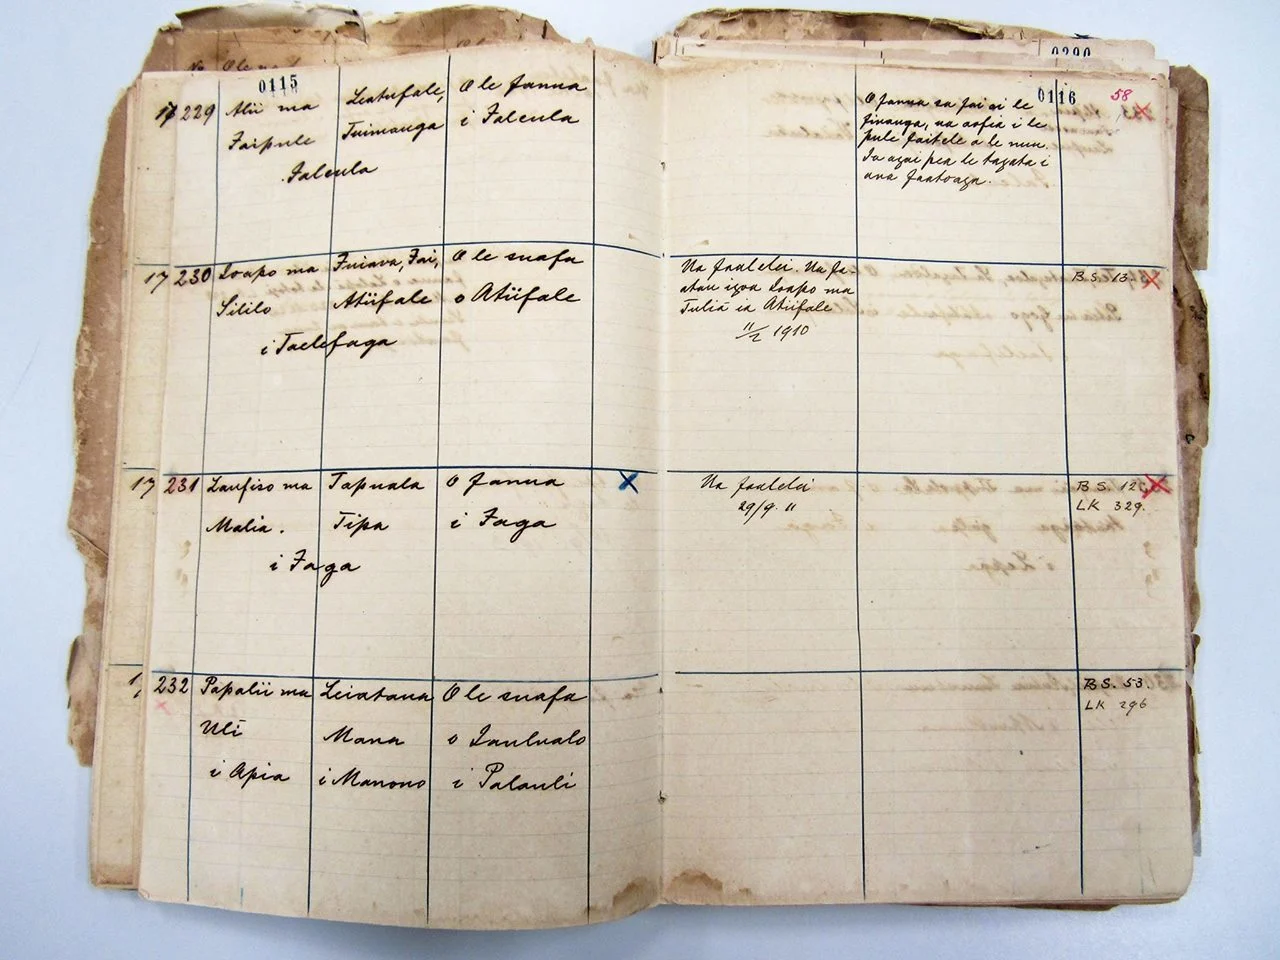 0115
17 229 Alii ma Leatufale, O le fanua
Faipule Tuimauga i Faleula
Faleula
17 230 Loapo ma Fuiava, Fai, O le suafa
Sililo Atiifale o Atiifale
i Taelefaga
17 231 Laufiso ma Tapuala o fanua
Malia. Tipa i Faga
i Faga
232 Papalii ma Leiataua O le suafa
Uli Mana o Laulualo
i Apia i Manono i Palauli
0290
0116 58
O fanua sa fai ai le
finauga, ua aofia i le
pule faitele a le nuu.
Ia agai pea le tagata i
ana faatoaga.
Ua faalelei. Ua fa-
atau igoa Loapo ma B.S. 13.
Tulia ia Atiifale
11/2 1910
Ua faalelei B S. 125
29/9. 11 LK 329.
B S. 53.
LK 296